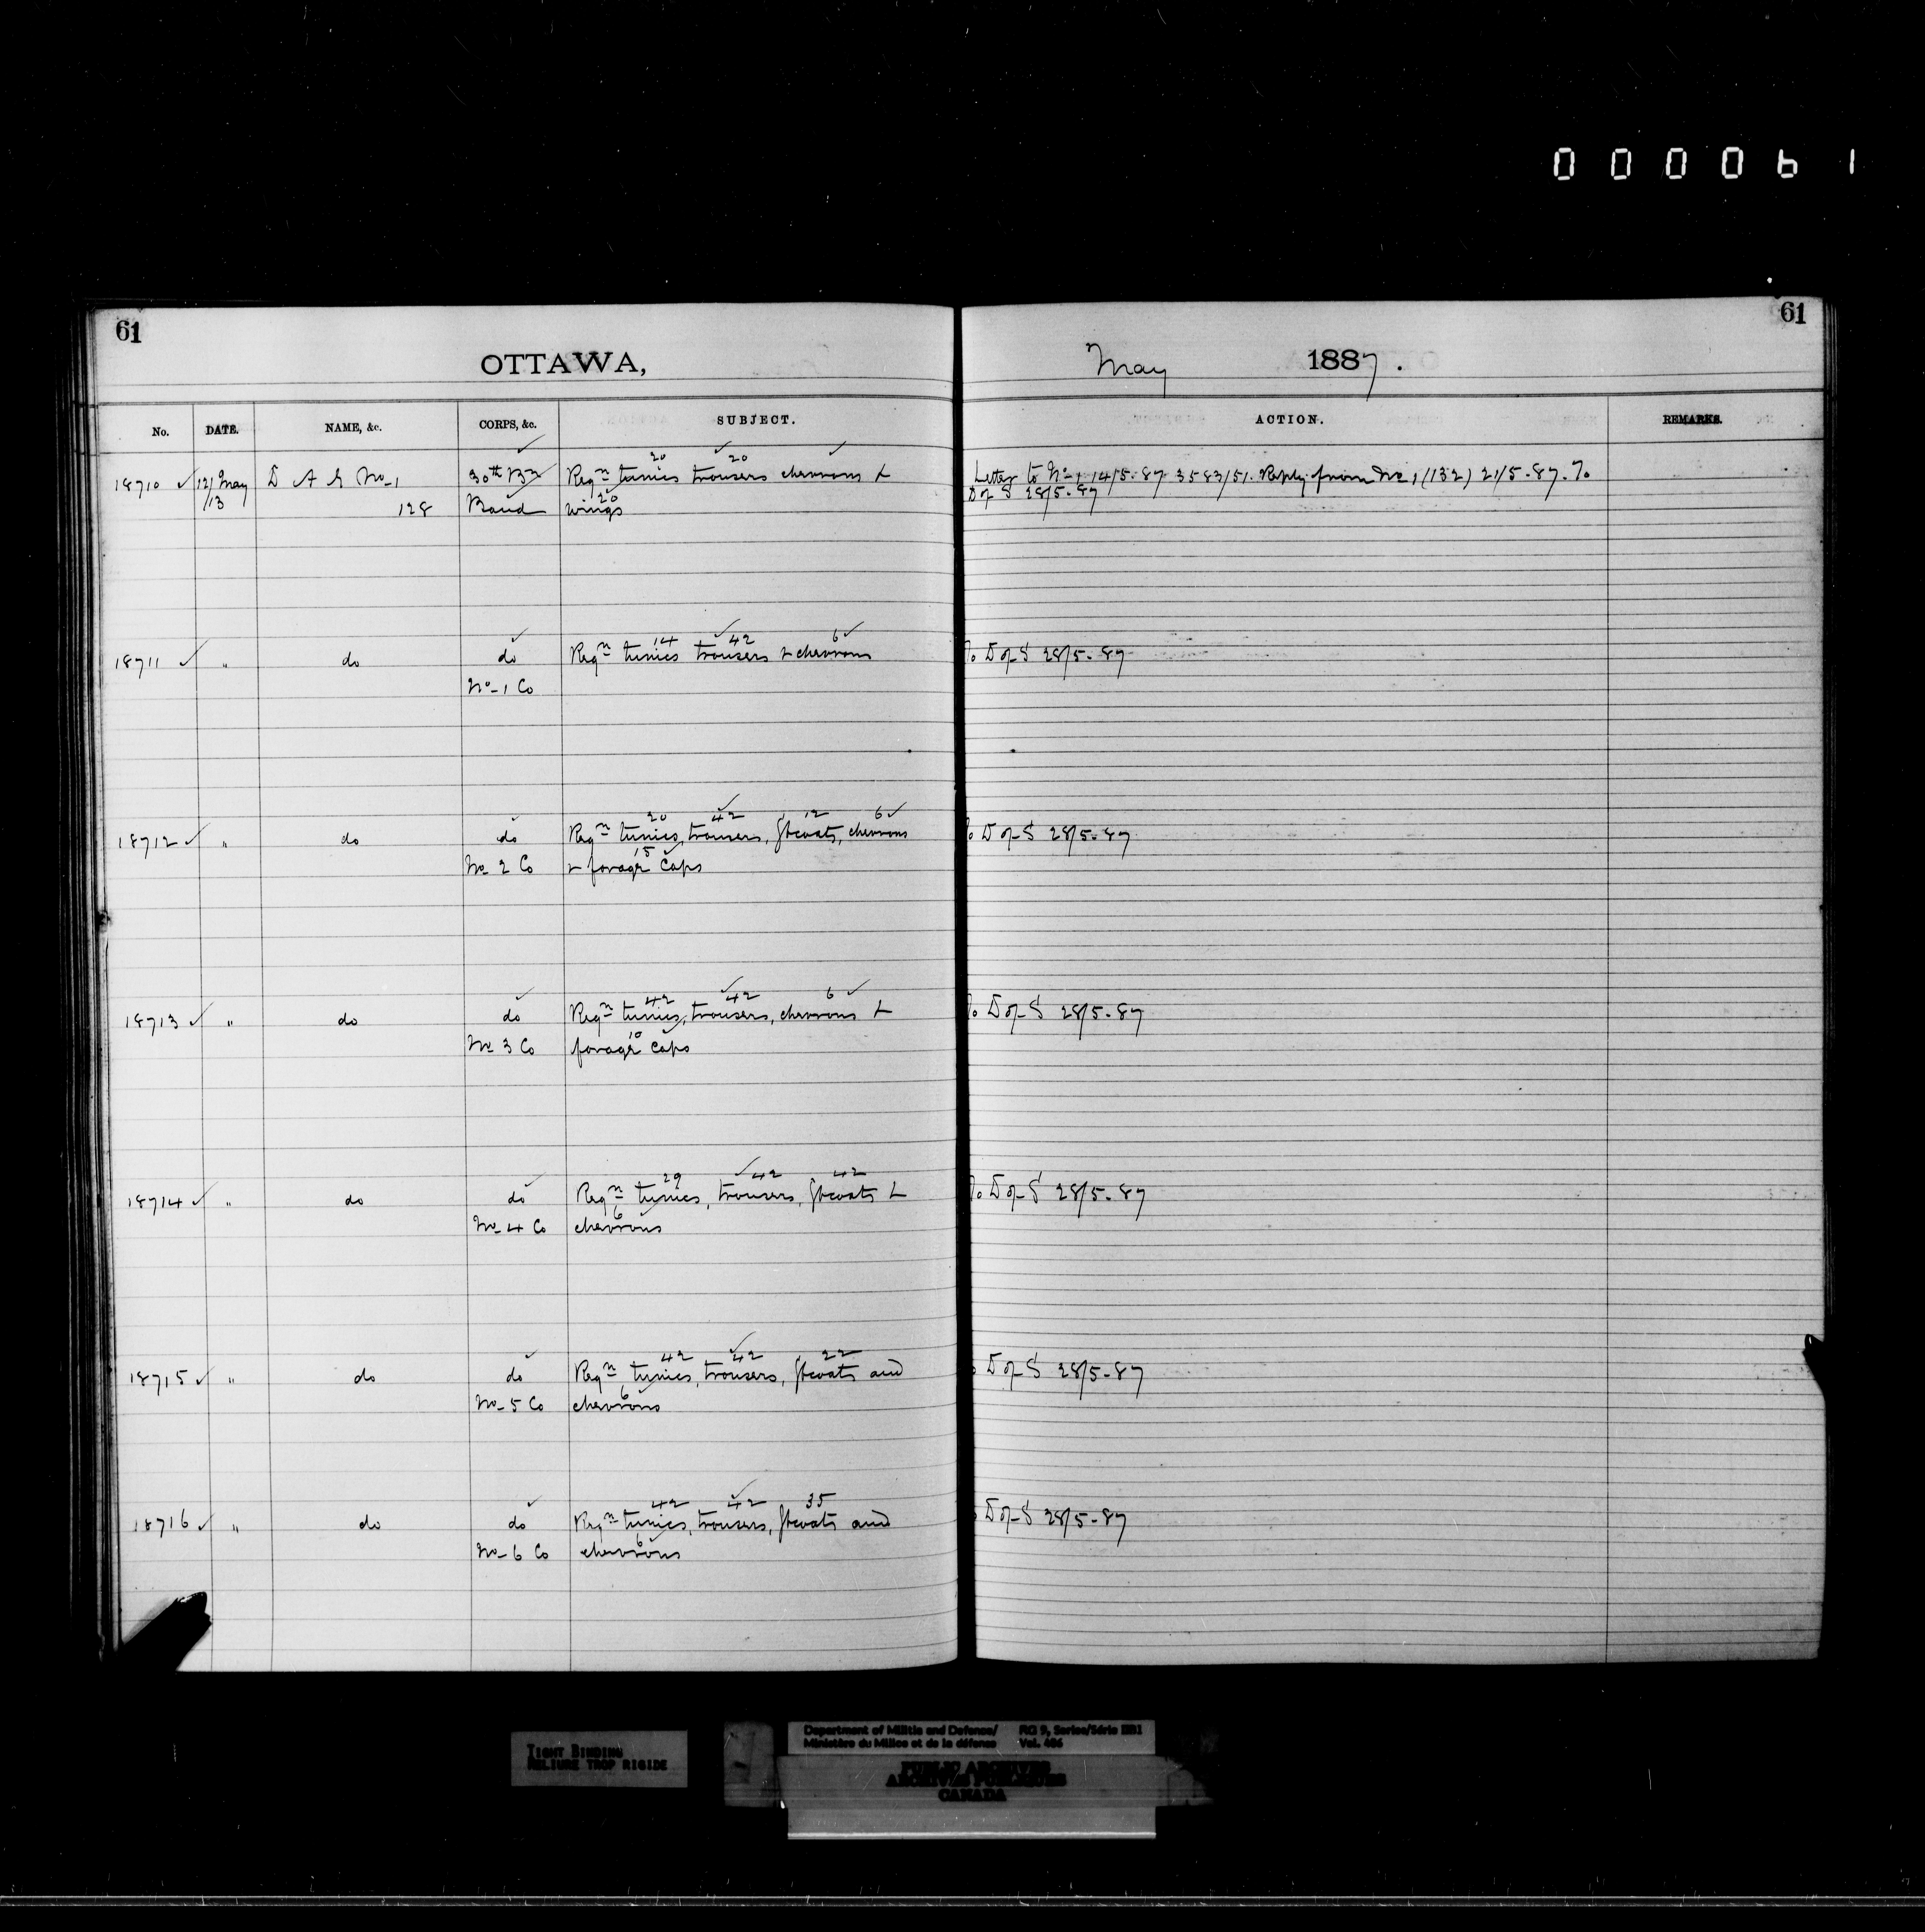 0 0 0 0 6 1
61
61
OTTAWA,
May 1887.
No. DATE. NAME, &c. CORPS, &c. SUBJECT. ACTION. REMARKS.
20 20
18710 ✓ 12/ May D A G No 1 30th Bn Reqn tunics trousers chevrons & Letter to No 1 14/5-87 3583/51. Reply from No 1 (132) 21/5-87. To
/13 20 D of S 28/5-87
128 Band wings
14 42 6
18711 ✓ " do do Reqn tunics trousers & chevrons To D of S 28/5-87
No 1 Co
20 42 12 6
18712 ✓ " do do Reqn tunics, trousers, gtcoats, chevrons To D of S 28/5-87
15
No 2 Co & forage caps
42 42 6
18713 ✓ " do do Reqn tunics, trousers, chevrons & To D of S 28/5-87
10
No 3 Co forage caps
29 42 42
18714 ✓ " do do Reqn tunics, trousers, gtcoats & To D of S 28/5-87
6
No 4 Co chevrons
42 42 22
18715 ✓ " do do Reqn tunics, trousers, gtcoats and D of S 28/5-87
6
No 5 Co chevrons
42 42 35
18716 ✓ " do do Reqn tunics, trousers, gtcoats and D of S 28/5-87
6
No 6 Co chevrons
TIGHT BINDING
RELIURE TROP RIGIDE
Department of Militia and Defence/ RG 9, Series/Série IIB1
Ministère du Milice et de la défense Vol. 406
PUBLIC ARCHIVES
ARCHIVES PUBLIQUES
CANADA